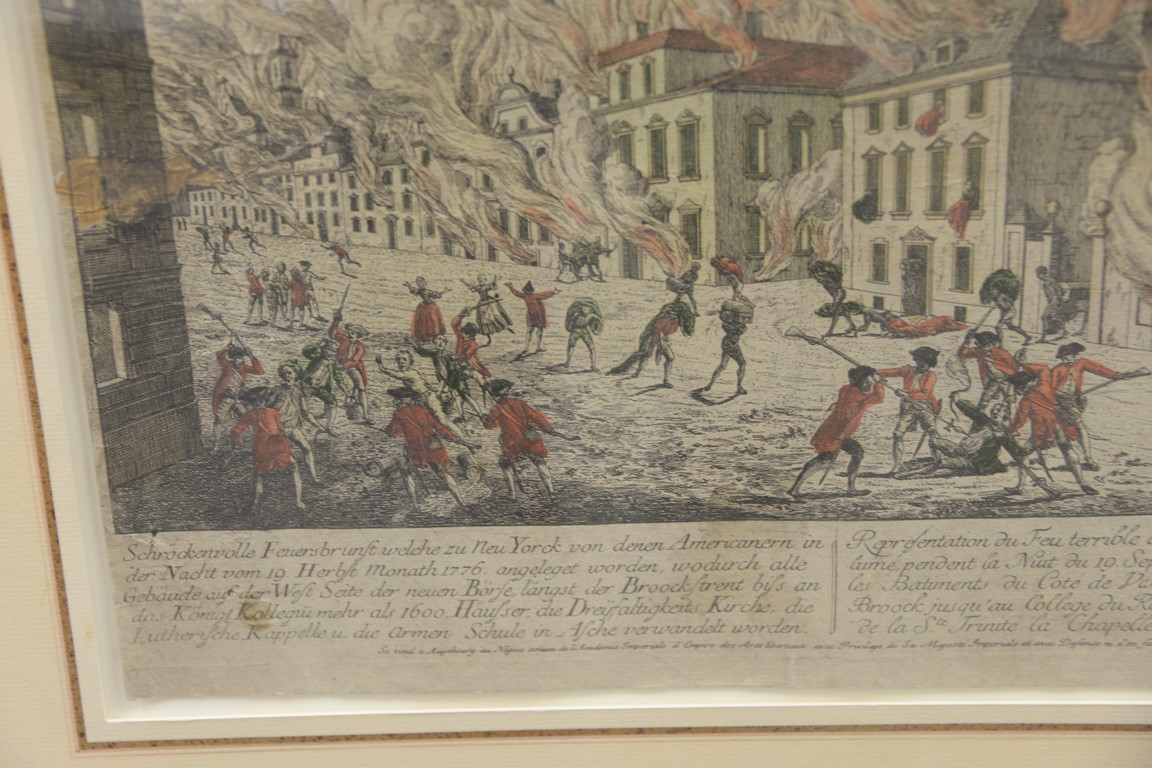 Schröckenvolle Feuersbrunst welche zu Neu Yorck von denen Americanern in
der Nacht vom 19. Herbst Monath 1776. angeleget worden, wodurch alle
Gebäude auf der West Seite der neuen Börse, längst der Broockstreet biss an
das Königl. Kollegiũ mehr als 1600. Häusser, die Dreyfaltigkeits Kirche, die
Lutherische Kappelle u. die Armen Schule in Asche verwandelt worden.
Représentation du Feu terrible
lumé pendent la Nuit du 19. Sep
les Batiments du Coté de
Broock jusqu'au College du
de la Ste Trinité la Chapelle
Se vend à Augsbourg au Négoce de l'Academie Imperiale d'Empire des Arts liberaux avec Privilege de Sa Majesté Imperiale et avec Defense